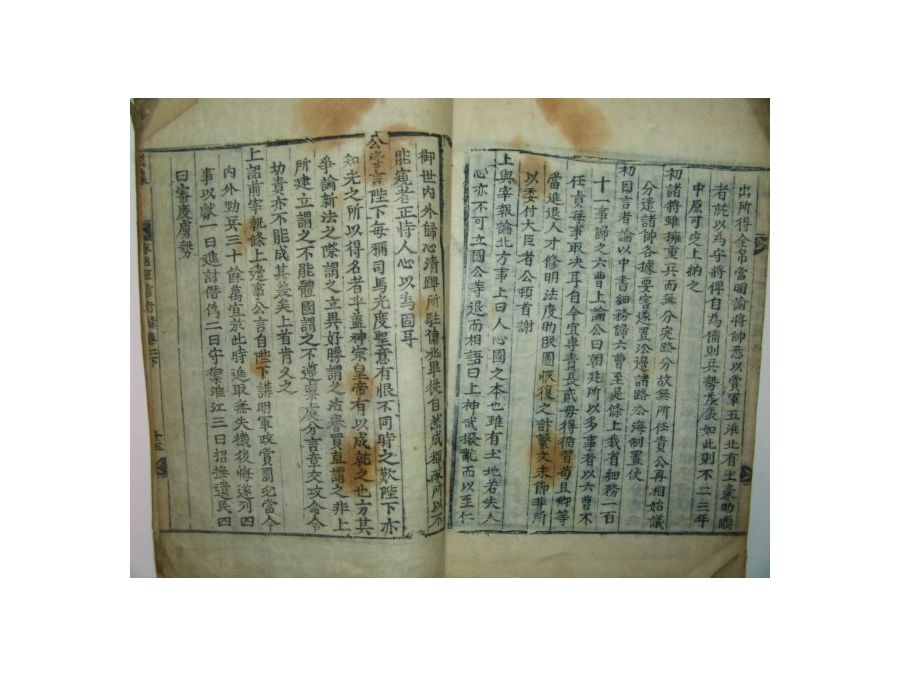 出所得金帛當明諭將帥悉以賞軍五淮北有土豪助順
者託以為守將俾自為備則兵勢益張如此則不二三年
中原可定上納之
初諸將雖擁重兵而無分定路分故無所任責公再相始議
分遣諸帥各據要害遂置沿邊諸路公海制置使
初因言者論以中書細務歸六曹至是條上裁省細務一百
十一事歸之六曹上諭公曰朝廷所以多事者以六曹不
任責每事取决耳自今宜專責長貳毋得循習苟且卿等
當進退人才修明法度助朕圖恢復之計繁文末節非所
以委付大臣者公頓首謝
上與宰執論北方事上曰人心國之本也雖有土地若失人
心亦不可立國公等退而相語曰上神武撥亂而以至仁
御世内外歸心清蹕所駐億兆畢從自然成都所以不
能窺者正恃人心以為固耳
公嘗言陛下每稱司馬光度聖意有恨不同時之歎陛下亦
知光之所以得名者乎盖神宗皇帝有以成就之也方其
爭論新法之際謂之立異好勝謂之沽譽買直謂之非上
所建立謂之不能體國謂之不遵禀處分言章交攻命令
切責亦不能成其美矣上首肯久之
上詔前宰執條上邊事公言自陛下講明軍政賞罰必當今
内外勁兵三十餘萬宜於此時進取無失機後悔遂列四
事以獻一曰進討僭偽二曰守禦淮江三曰招撫遺民四
曰審度虜勢
十五